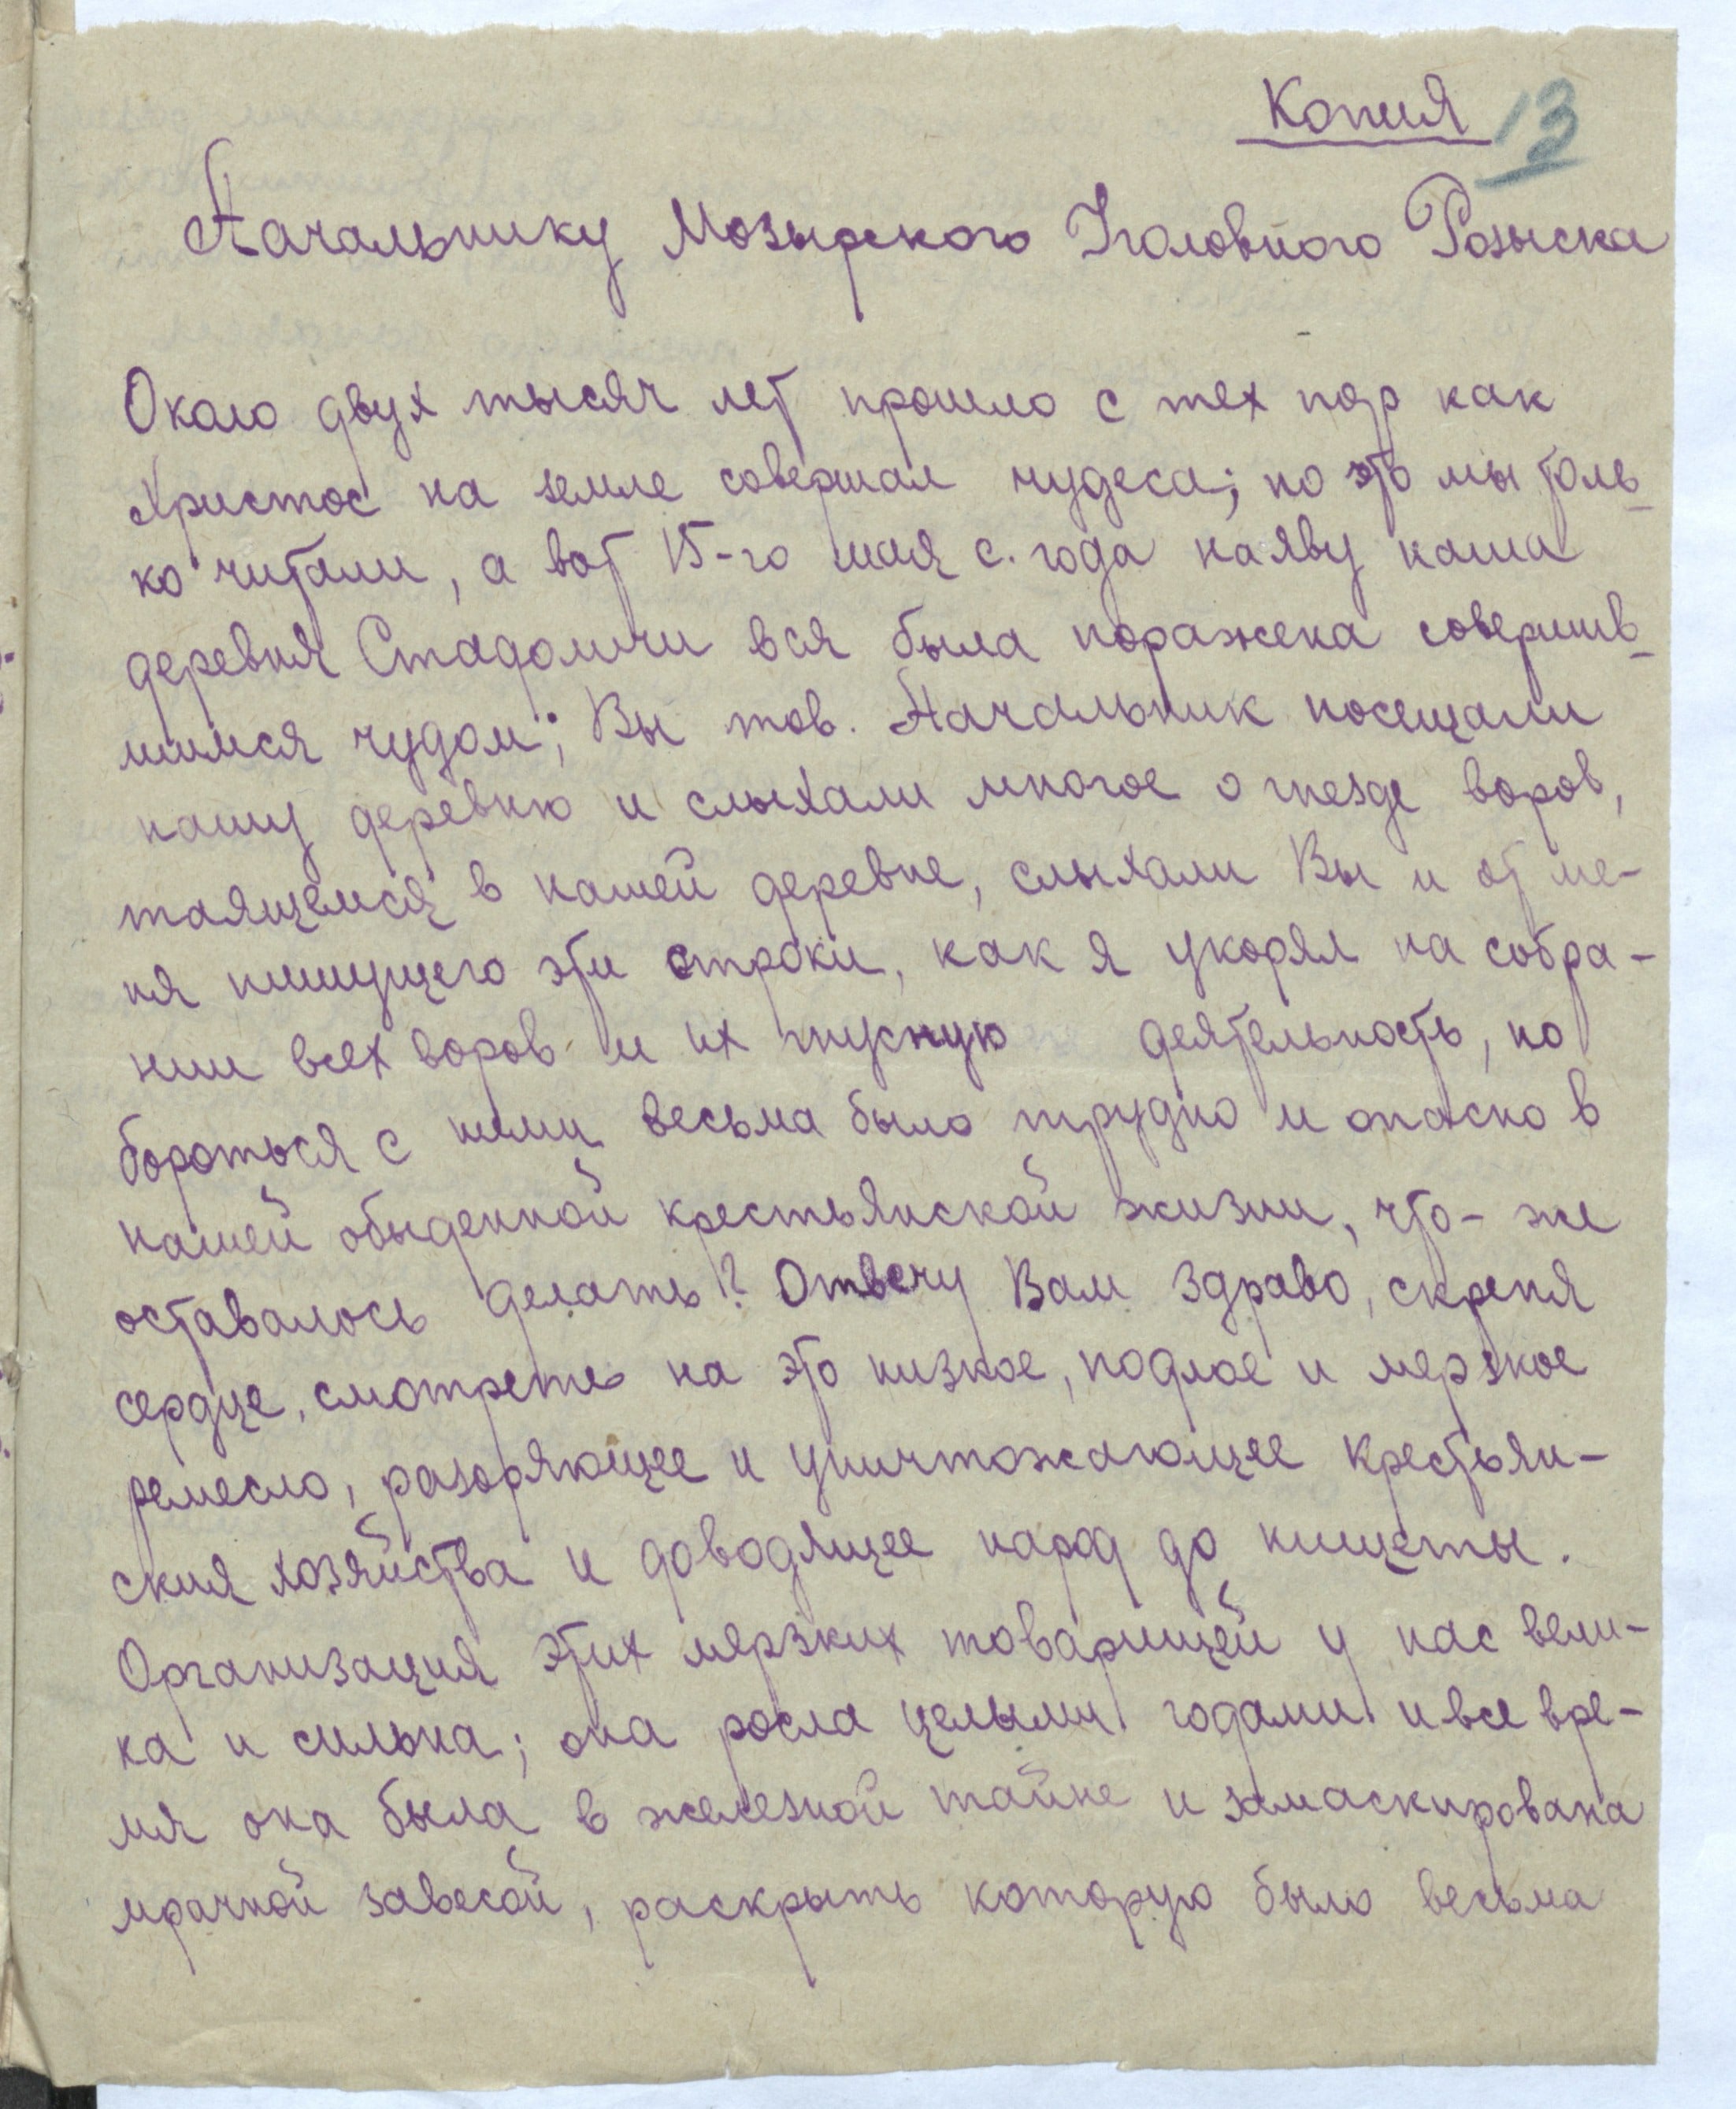 Копия 13
Начальнику Мозырского Уголовного Розыска
Около двух тысяч лет прошло с тех пор как
Христос на земле совершал чудеса; но это мы толь-
ко читали, а вот 15-го мая с. года наяву наша
деревня Стадоличи вся была поражена совершив-
шимся чудом; Вы тов. Начальник посещали
нашу деревню и слыхали многое о гнезде воров,
таящемся в нашей деревне, слыхали Вы и от ме-
ня пишущего эти строки, как я укорял на собра-
нии всех воров и их гнусную деятельность, но
бороться с ними весьма было трудно и опасно в
нашей обыденной крестьянской жизни, что-же
оставалось делать? Отвечу Вам здраво, скрепя
сердце, смотреть на это низкое, подлое и мерзкое
ремесло, разоряющее и уничтожающее крестьян-
ския хозяйства и доводящее народ до нищеты.
Организация этих мерзких товарищей у нас вели-
ка и сильна; она росла целыми годами и все вре-
мя она была в железной тайне и замаскирована
мрачной завесой, раскрыть которую было весьма